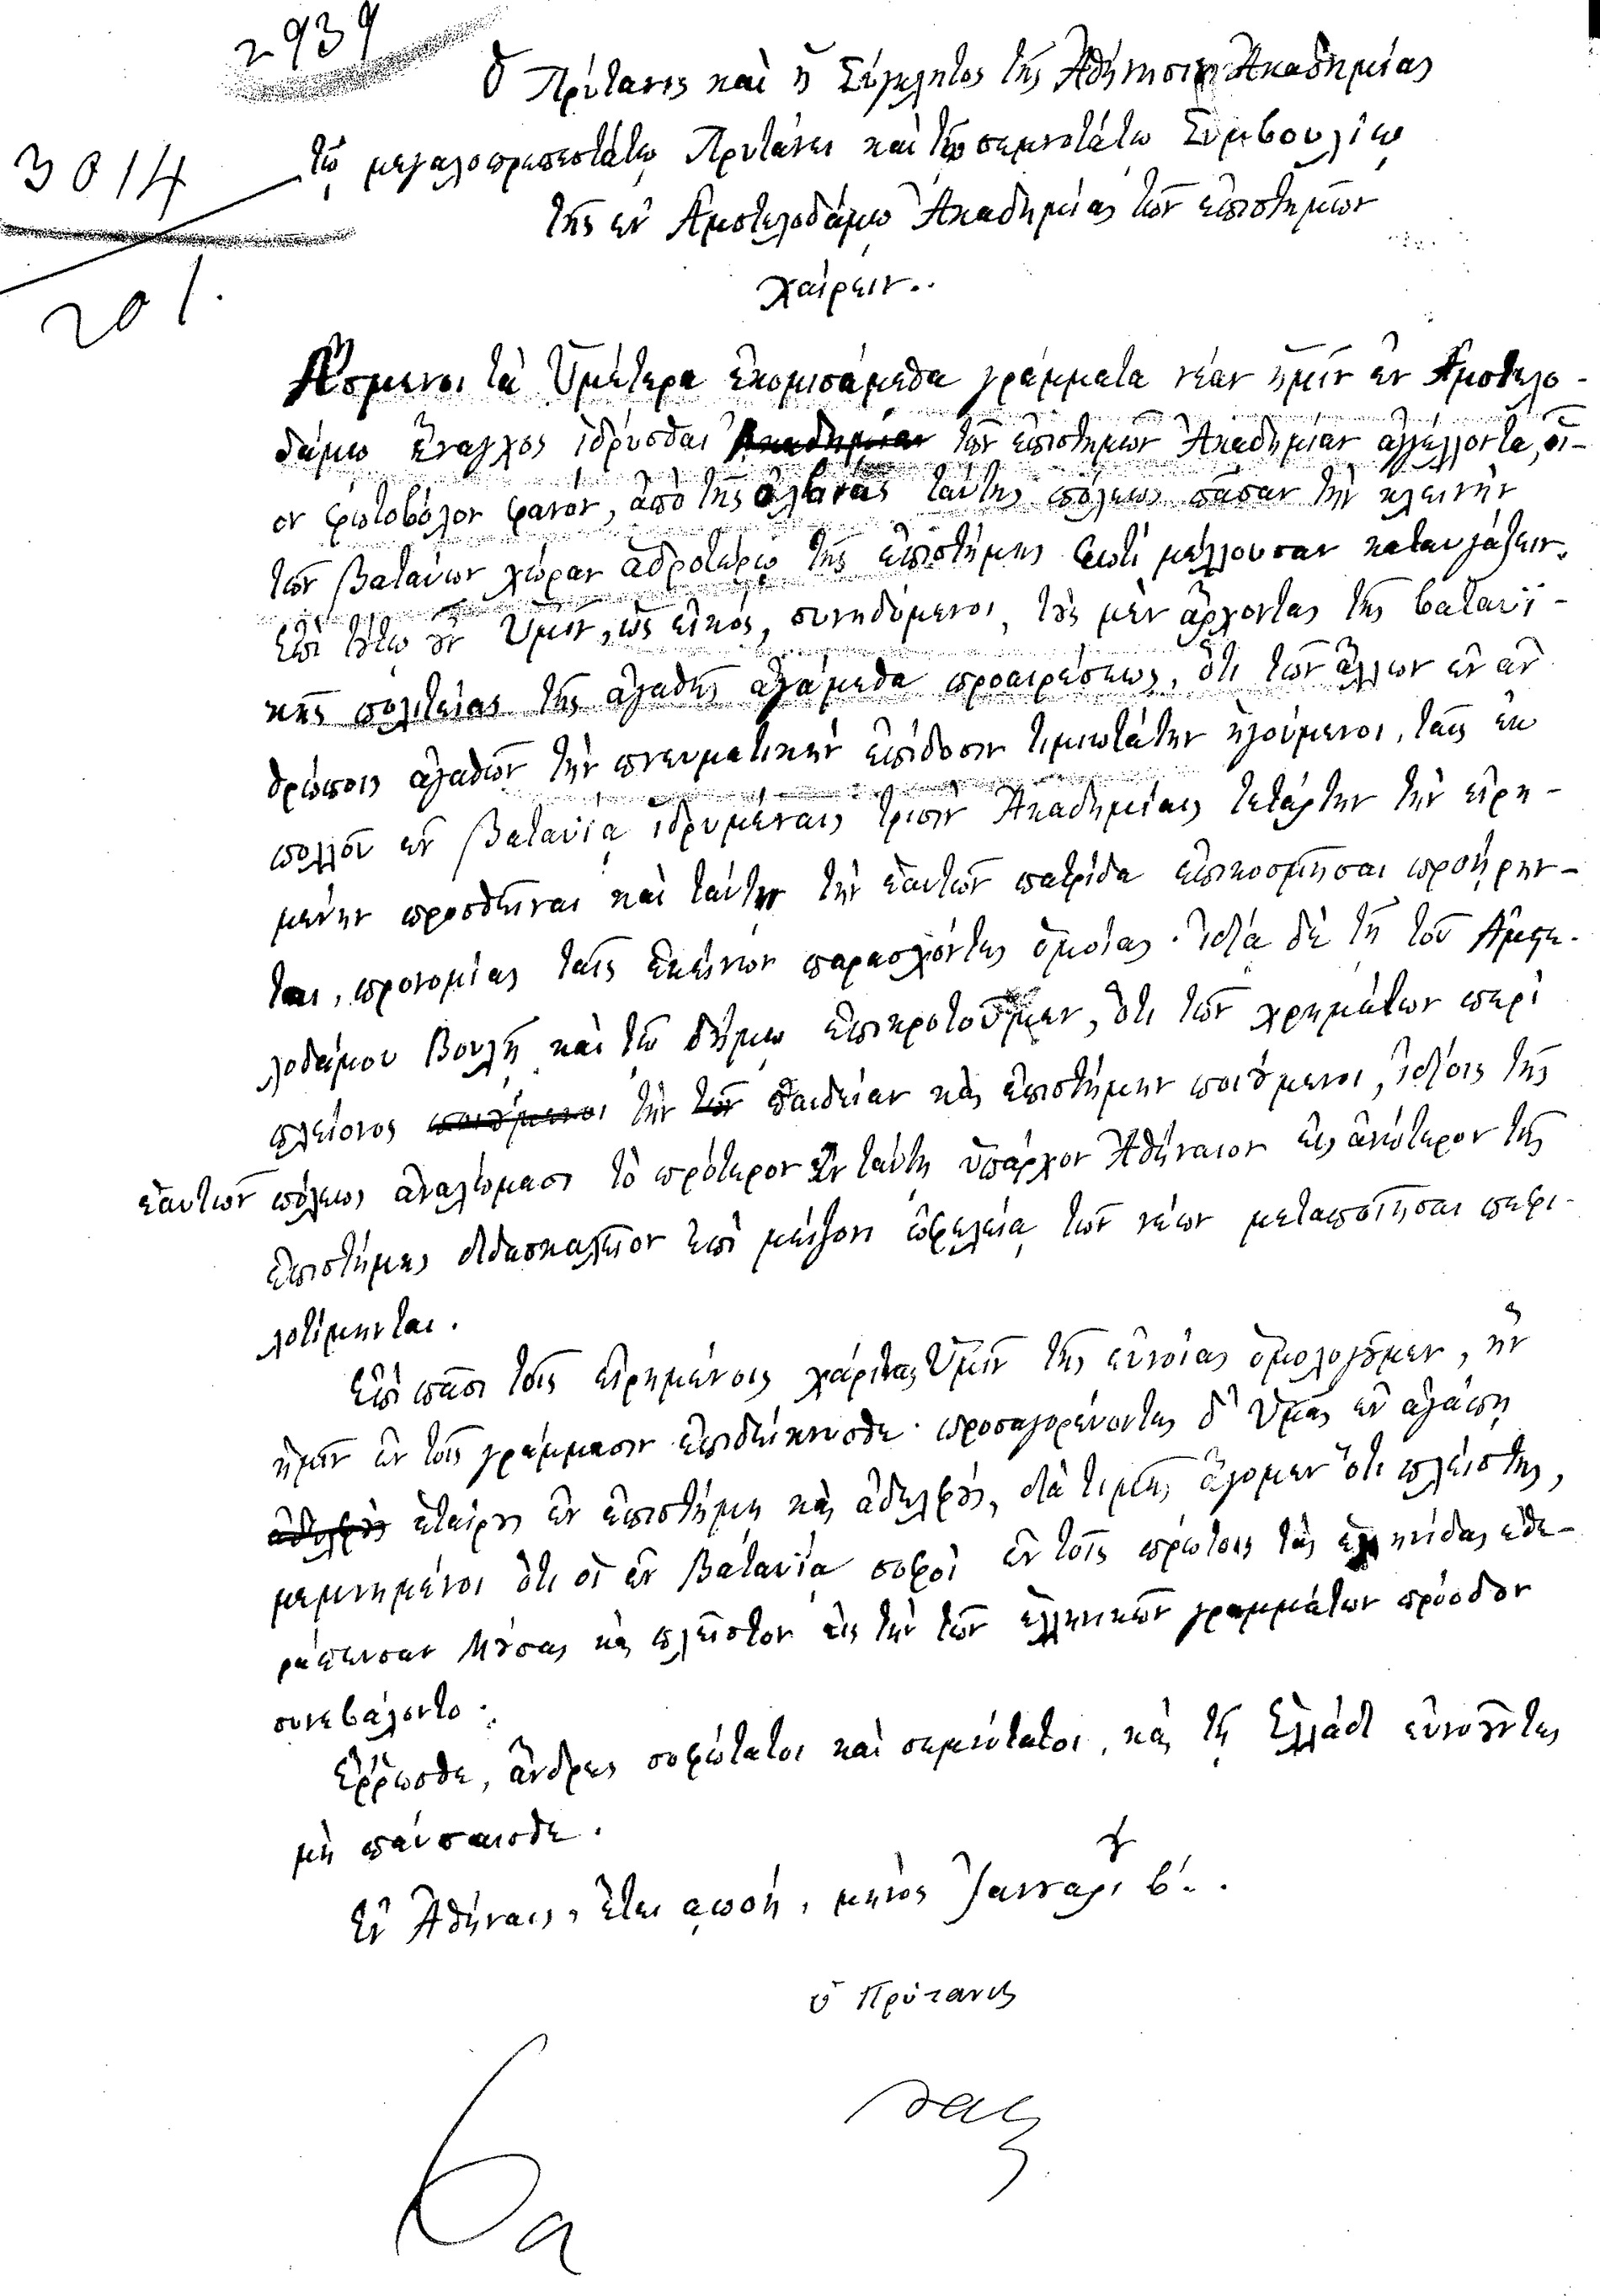 2939
Ὁ Πρύτανις καὶ ἡ Σύγκλητος τῆς Ἀθήνησιν Ἀκαδημίας
3014
τῷ μεγαλοπρεπεστάτῳ Πρυτάνει καὶ τῷ σεμνοτάτῳ Συμβουλίῳ
τῆς ἐν Ἀμστελοδάμῳ Ἀκαδημίας τῶν ἐπιστημῶν
201.
χαίρειν..
Ἄσμενοι τὰ Ὑμέτερα ἐκομισάμεθα γράμματα νέαν ἡμῖν ἐν Ἀμστελο-
δάμῳ ἔναγχος ἱδρύσθαι Ἀκαδημίαν τῶν ἐπιστημῶν Ἀκαδημίαν ἀγγέλλοντα, οἷ-
ον φωτοβόλον φανόν, ἀπὸ τῆς ταύτης πόλεως πᾶσαν τὴν κλεινὴν
τῶν Βαταύων χώραν ἁδροτέρῳ τῆς ἐπιστήμης φωτὶ μέλλουσαν καταυγάζειν.
Ἐπὶ τούτῳ οὖν Ὑμῖν, ὡς εἰκός, συνηδόμενοι, τοὺς μὲν ἄρχοντας τῆς βαταυϊ-
κῆς πολιτείας τῆς ἀγαθῆς ἀγάμεθα προαιρέσεως, ὅτι τῶν ἄλλων ἐν ἀν
θρώποις ἀγαθῶν τὴν πνευματικὴν ἐπίδοσιν τιμιωτάτην ἡγούμενοι, ταῖς ἐκ
πολλοῦ ἐν Βαταυΐᾳ ἱδρυμέναις τρισὶν Ἀκαδημίαις τετάρτην τὴν εἰρη-
μένην προσθεῖναι καὶ ταύτῃ τὴν ἑαυτῶν πατρίδα ἐπικοσμῆσαι προῄρην-
ται, προνομίας ταῖς ἐκείνων παρασχόντες ὁμοίας. Ἰδίᾳ δὲ τῇ τοῦ Ἀμστε-
λοδάμου Βουλῇ καὶ τῷ δήμῳ ἐπικροτοῦμεν, ὅτι τῶν χρημάτων περὶ
πλείονος ποιούμενοι τὴν τῶν παιδείαν καὶ ἐπιστήμην ποιούμενοι, ἰδίοις τῆς
ἑαυτῶν πόλεως ἀναλώμασι τὸ πρότερον ἐν ταύτῃ ὑπάρχον Ἀθήναιον εἰς ἀνώτερον τῆς
ἐπιστήμης διδασκαλεῖον ἐπὶ μείζονι ὠφελείᾳ τῶν νέων μεταποιῆσαι πεφι-
λοτίμηνται.
Ἐπὶ πᾶσι τοῖς εἰρημένοις χάριτας Ὑμῖν τῆς εὐνοίας ὁμολογοῦμεν, ἣν
ἡμῖν ἐν τοῖς γράμμασιν ἐπιδείκνυσθε· προσαγορεύοντες δ' Ὑμᾶς ἐν ἀγάπῃ
ἀδελφοὺς ἑταίρους ἐν ἐπιστήμῃ καὶ ἀδελφούς, διὰ τιμῆς ἄγομεν ὅτι πλείστης,
μεμνημένοι ὅτι οἱ ἐν Βαταυΐᾳ σοφοὶ ἐν τοῖς πρώτοις τὰς ἑλληνίδας ἐθε-
ράπευσαν Μούσας καὶ πλεῖστον εἰς τὴν τῶν ἑλληνικῶν γραμμάτων πρόοδον
συνεβάλοντο.
Ἔρρωσθε, ἄνδρες σοφώτατοι καὶ σεμνότατοι, καὶ τῇ Ἑλλάδι εὐνοοῦντες
μὴ παύσαισθε.
Ἐν Ἀθήναις, ἔτει αωοή, μηνὸς Ἰανναρίου β΄.
ὁ Πρύτανις